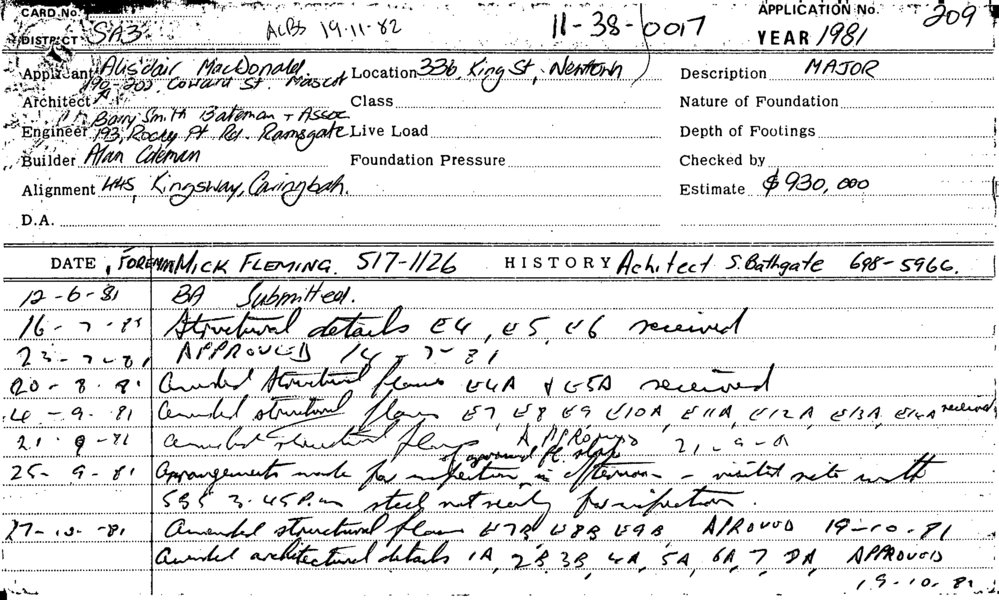 CARD No. APPLICATION No. 209
DISTRICT SA3 ACBS 19-11-82 11-38-0017 YEAR 1981
Applicant Alisdair MacDonald Location 336, King St, Newtown Description MAJOR
190-200, Coward St. Mascot
Architect Class Nature of Foundation
Barry Smith Bateman + Assoc
Engineer 193, Rocky Pt Rd. Ramsgate Live Load Depth of Footings
Builder Alan Coleman Foundation Pressure Checked by
Alignment 445, Kingsway, Caringbah. Estimate $930,000
D.A.
DATE FOREMAN MICK FLEMING. 517-1126 HISTORY Architect S. Bathgate 698-5966.
12-6-81 BA Submitted.
16-7-81 Structural details E4, E5, E6 received
23-7-81 APPROVED 14-7-81
20-8-81 Amended Structural plans E4A & E5A received
4-9-81 Amended structural plans E7 E8 E9 E10A, E11A, E12A E13A, E14A received
21-9-81 Amended structural plans APPROVED 21-9-81
of ground fl. slab
25-9-81 Arrangements made for inspection in afternoon - visited site with
SGS 3.45 P.m steel not ready for inspection.
27-10-81 Amended structural plans E7B, E8B, E9B, APROVED 19-10-81
Amended architectural details 1A, 2B, 3B, 4A, 5A, 6A, 7, DA, APPROVED
19-10-81